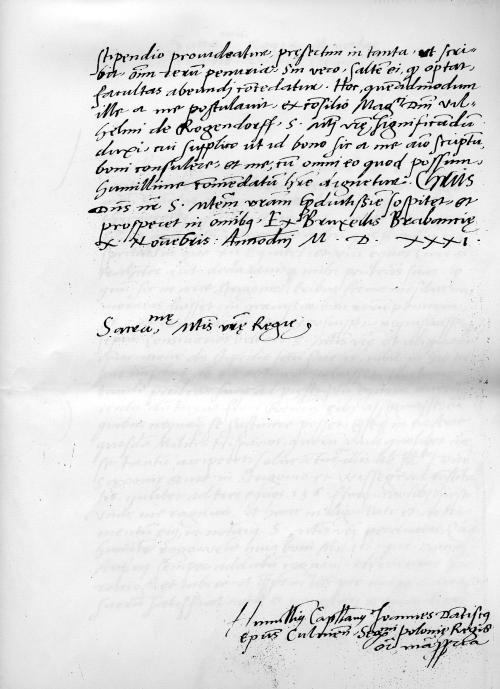 stipendio provideatur, presertim in tanta, ut scri-
bit, oim rerum penuria. Sin vero, saltem ei, quod optat,
facultas abeundj concedatur. Hoc, quemadmodum
ille a me postulavit, et consilio Magci Dnj Vil-
helmi de Rogendorff, S. Mtj vrę significandum
duxi, cui supplico ut id bono sic a me aio scriptum
boni consulere, et me, cum omni eo quod possum,
humillime comendatum hre dignetur. Christus
Dns nr S. Mtem vram qdiutissime sospitet et
prosperet in omibus. Ex Bruxellis Brabantię
X Novembris. Anno dnj M. D. XXXI.
Sacrame Mtis vrę Regię
Humillimus Capellanus Joannes Dantiscus
Epus Culmen. Sermi Polonię Regis
or mampp[